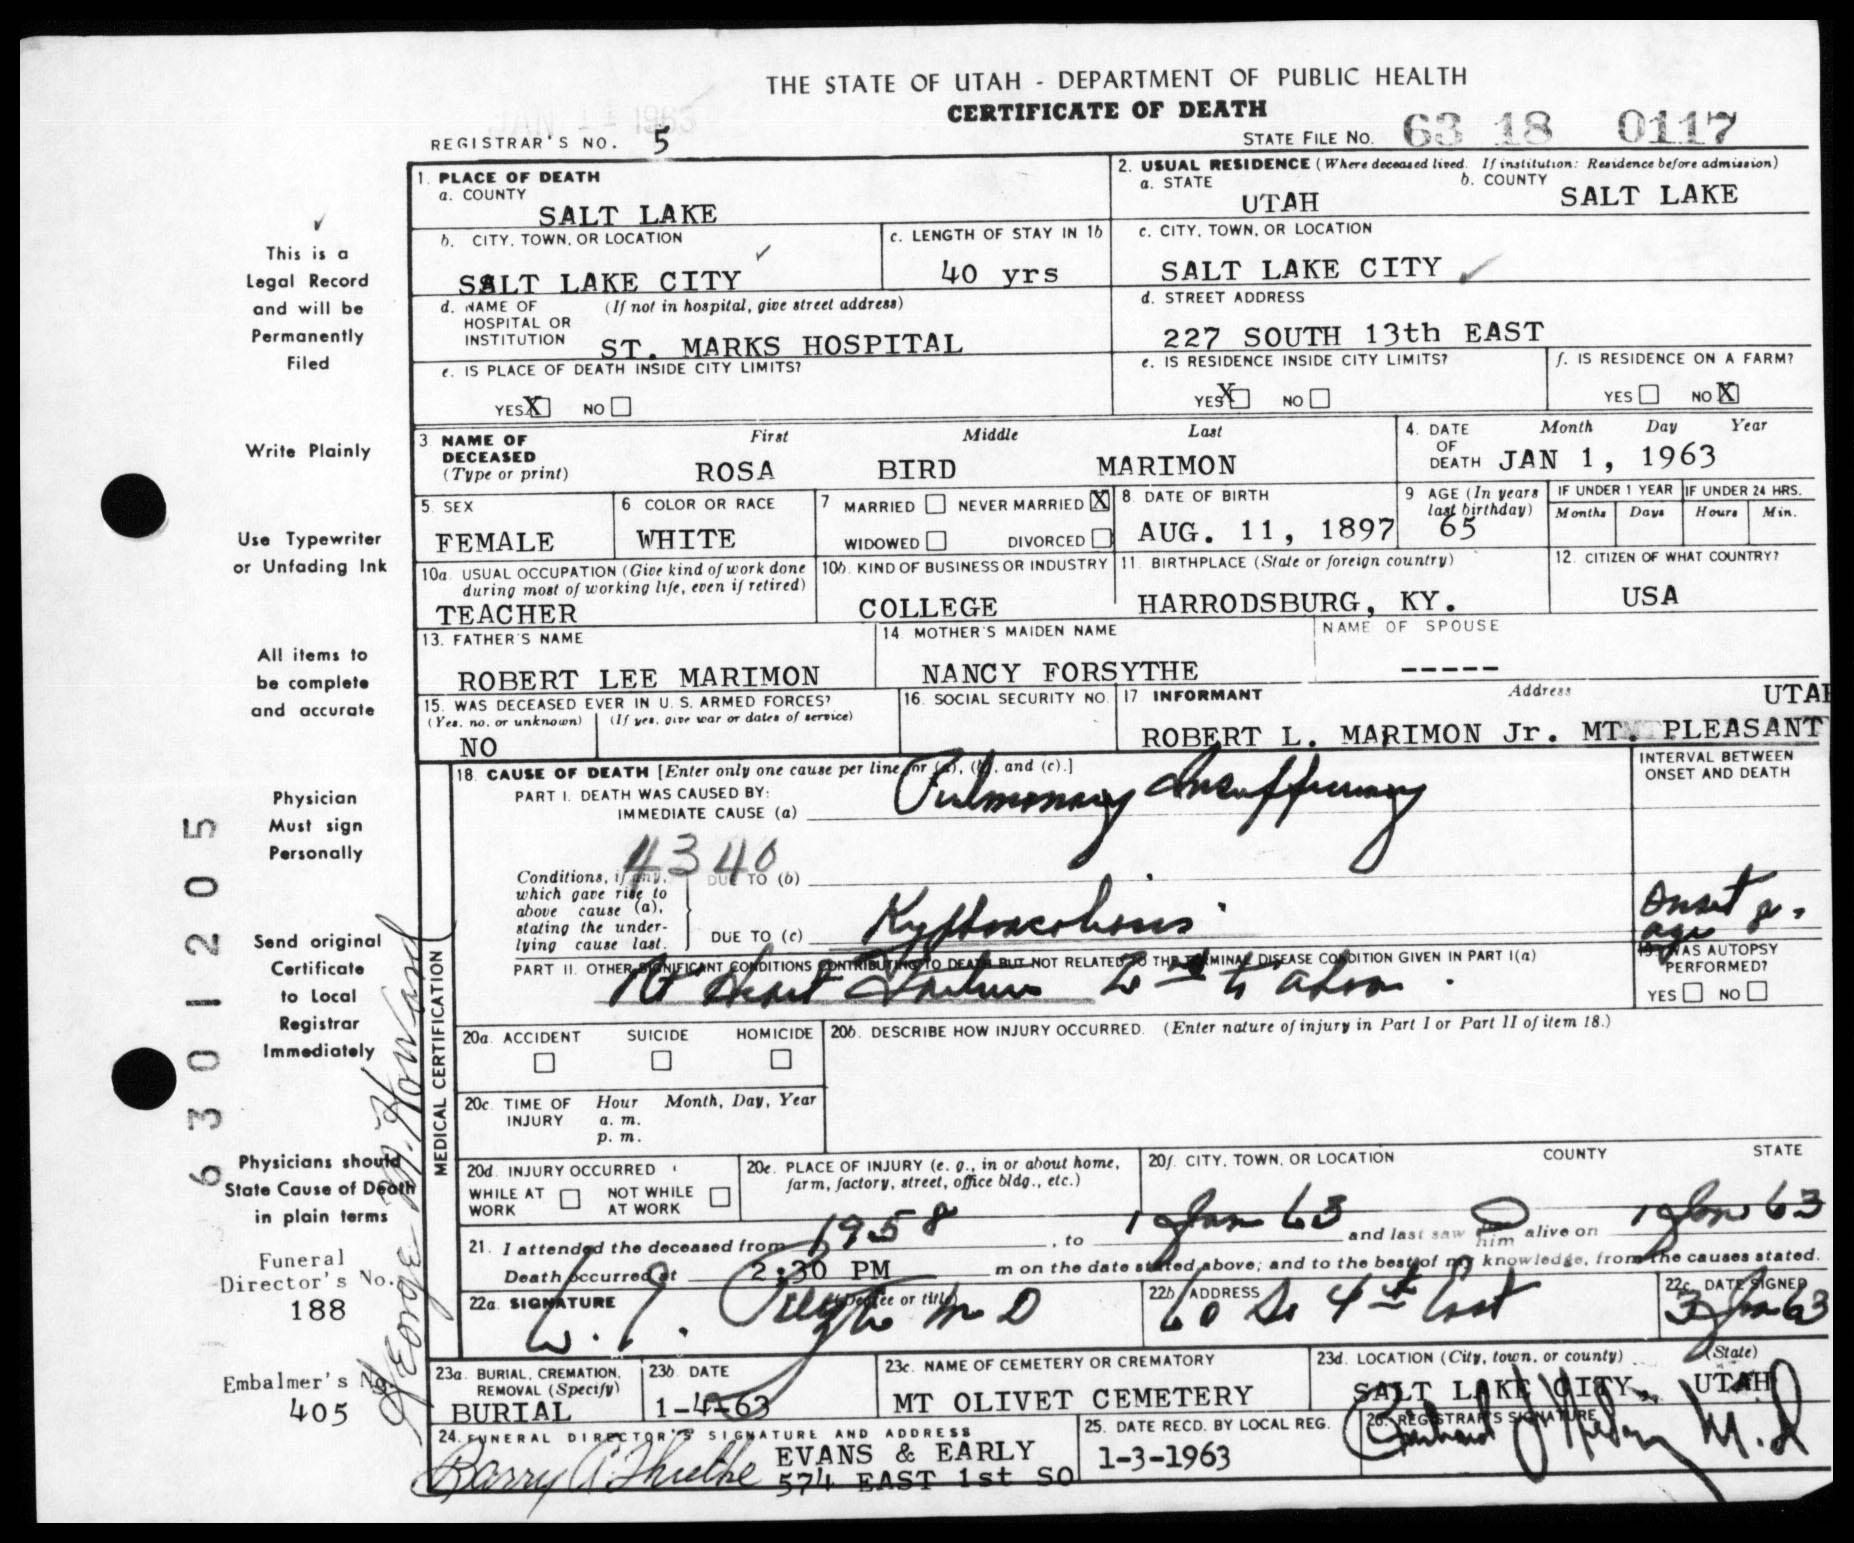 THE STATE OF UTAH - DEPARTMENT OF PUBLIC HEALTH
CERTIFICATE OF DEATH
REGISTRAR'S NO. 5
STATE FILE NO. 63 18 0117
1. PLACE OF DEATH
a. COUNTY
SALT LAKE
2. USUAL RESIDENCE (Where deceased lived. If institution: Residence before admission)
a. STATE
UTAH
b. COUNTY
SALT LAKE
b. CITY, TOWN, OR LOCATION
SALT LAKE CITY
c. LENGTH OF STAY IN 1b
40 yrs
c. CITY, TOWN, OR LOCATION
SALT LAKE CITY
d. NAME OF HOSPITAL OR INSTITUTION (If not in hospital, give street address)
ST. MARKS HOSPITAL
d. STREET ADDRESS
227 SOUTH 13th EAST
e. IS PLACE OF DEATH INSIDE CITY LIMITS?
YES X NO
e. IS RESIDENCE INSIDE CITY LIMITS?
YES X NO
f. IS RESIDENCE ON A FARM?
YES NO X
3. NAME OF DECEASED (Type or print)
First Middle Last
ROSA BIRD MARIMON
4. DATE OF DEATH Month Day Year
JAN 1, 1963
5. SEX
FEMALE
6 COLOR OR RACE
WHITE
7 MARRIED NEVER MARRIED X
WIDOWED DIVORCED
8. DATE OF BIRTH
AUG. 11, 1897
9 AGE (In years last birthday)
65
IF UNDER 1 YEAR
Months Days
IF UNDER 24 HRS.
Hours Min.
10a. USUAL OCCUPATION (Give kind of work done during most of working life, even if retired)
TEACHER
10b. KIND OF BUSINESS OR INDUSTRY
COLLEGE
11. BIRTHPLACE (State or foreign country)
HARRODSBURG, KY.
12. CITIZEN OF WHAT COUNTRY?
USA
13. FATHER'S NAME
ROBERT LEE MARIMON
14 MOTHER'S MAIDEN NAME
NANCY FORSYTHE
NAME OF SPOUSE
-----
15. WAS DECEASED EVER IN U. S. ARMED FORCES?
(Yes, no, or unknown) (If yes, give war or dates of service)
NO
16. SOCIAL SECURITY NO.
17 INFORMANT Address
UTAH
ROBERT L. MARIMON Jr. MT. PLEASANT
18. CAUSE OF DEATH [Enter only one cause per line for (a), (b), and (c).]
PART I. DEATH WAS CAUSED BY:
IMMEDIATE CAUSE (a)
Pulmonary Insufficiency
INTERVAL BETWEEN ONSET AND DEATH
4340
Conditions, if any, which gave rise to above cause (a), stating the underlying cause last.
DUE TO (b)
DUE TO (c)
Kyphoscoliosis
Onset
age 8
PART II. OTHER SIGNIFICANT CONDITIONS CONTRIBUTING TO DEATH BUT NOT RELATED TO THE TERMINAL DISEASE CONDITION GIVEN IN PART I(a)
Rt Heart Failure 2nd to above.
19. WAS AUTOPSY PERFORMED?
YES NO
20a. ACCIDENT SUICIDE HOMICIDE
20b. DESCRIBE HOW INJURY OCCURRED. (Enter nature of injury in Part I or Part II of item 18.)
20c. TIME OF INJURY Hour Month, Day, Year
a. m.
p. m.
20d. INJURY OCCURRED
WHILE AT WORK NOT WHILE AT WORK
20e. PLACE OF INJURY (e. g., in or about home, farm, factory, street, office bldg., etc.)
20f. CITY, TOWN, OR LOCATION COUNTY STATE
21. I attended the deceased from 1958, to 1 Jan 63 and last saw him alive on 1 Jan 63
Death occurred at 2:30 PM m on the date stated above; and to the best of my knowledge, from the causes stated.
22a. SIGNATURE (Degree or title)
M D
22b. ADDRESS
60 So 4th East
22c. DATE SIGNED
3 Jan 63
23a. BURIAL, CREMATION, REMOVAL (Specify)
BURIAL
23b. DATE
1-4-63
23c. NAME OF CEMETERY OR CREMATORY
MT OLIVET CEMETERY
23d. LOCATION (City, town, or county) (State)
SALT LAKE CITY, UTAH
24. FUNERAL DIRECTOR'S SIGNATURE AND ADDRESS
EVANS & EARLY
574 EAST 1st SO
25. DATE RECD. BY LOCAL REG.
1-3-1963
26. REGISTRAR'S SIGNATURE
M.D
MEDICAL CERTIFICATION
This is a
Legal Record
and will be
Permanently
Filed
Write Plainly
Use Typewriter
or Unfading Ink
All items to
be complete
and accurate
Physician
Must sign
Personally
Send original
Certificate
to Local
Registrar
Immediately
Physicians should
State Cause of Death
in plain terms
Funeral
Director's No.
188
Embalmer's No.
405
George M. Howard
6301205